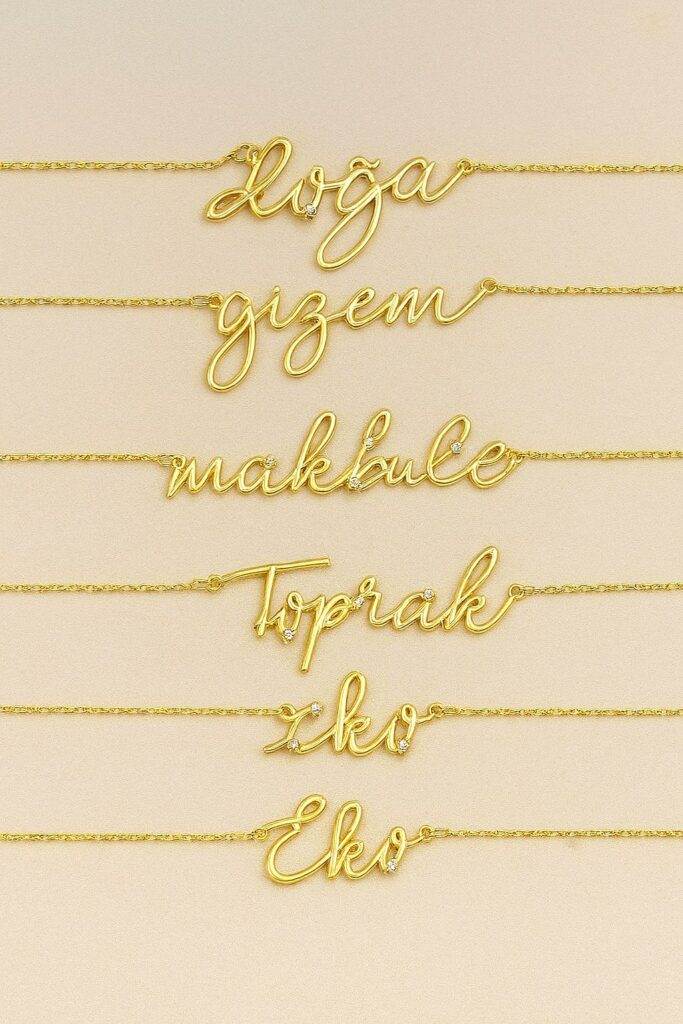 doğa
gizem
makbule
Toprak
zko
Eko